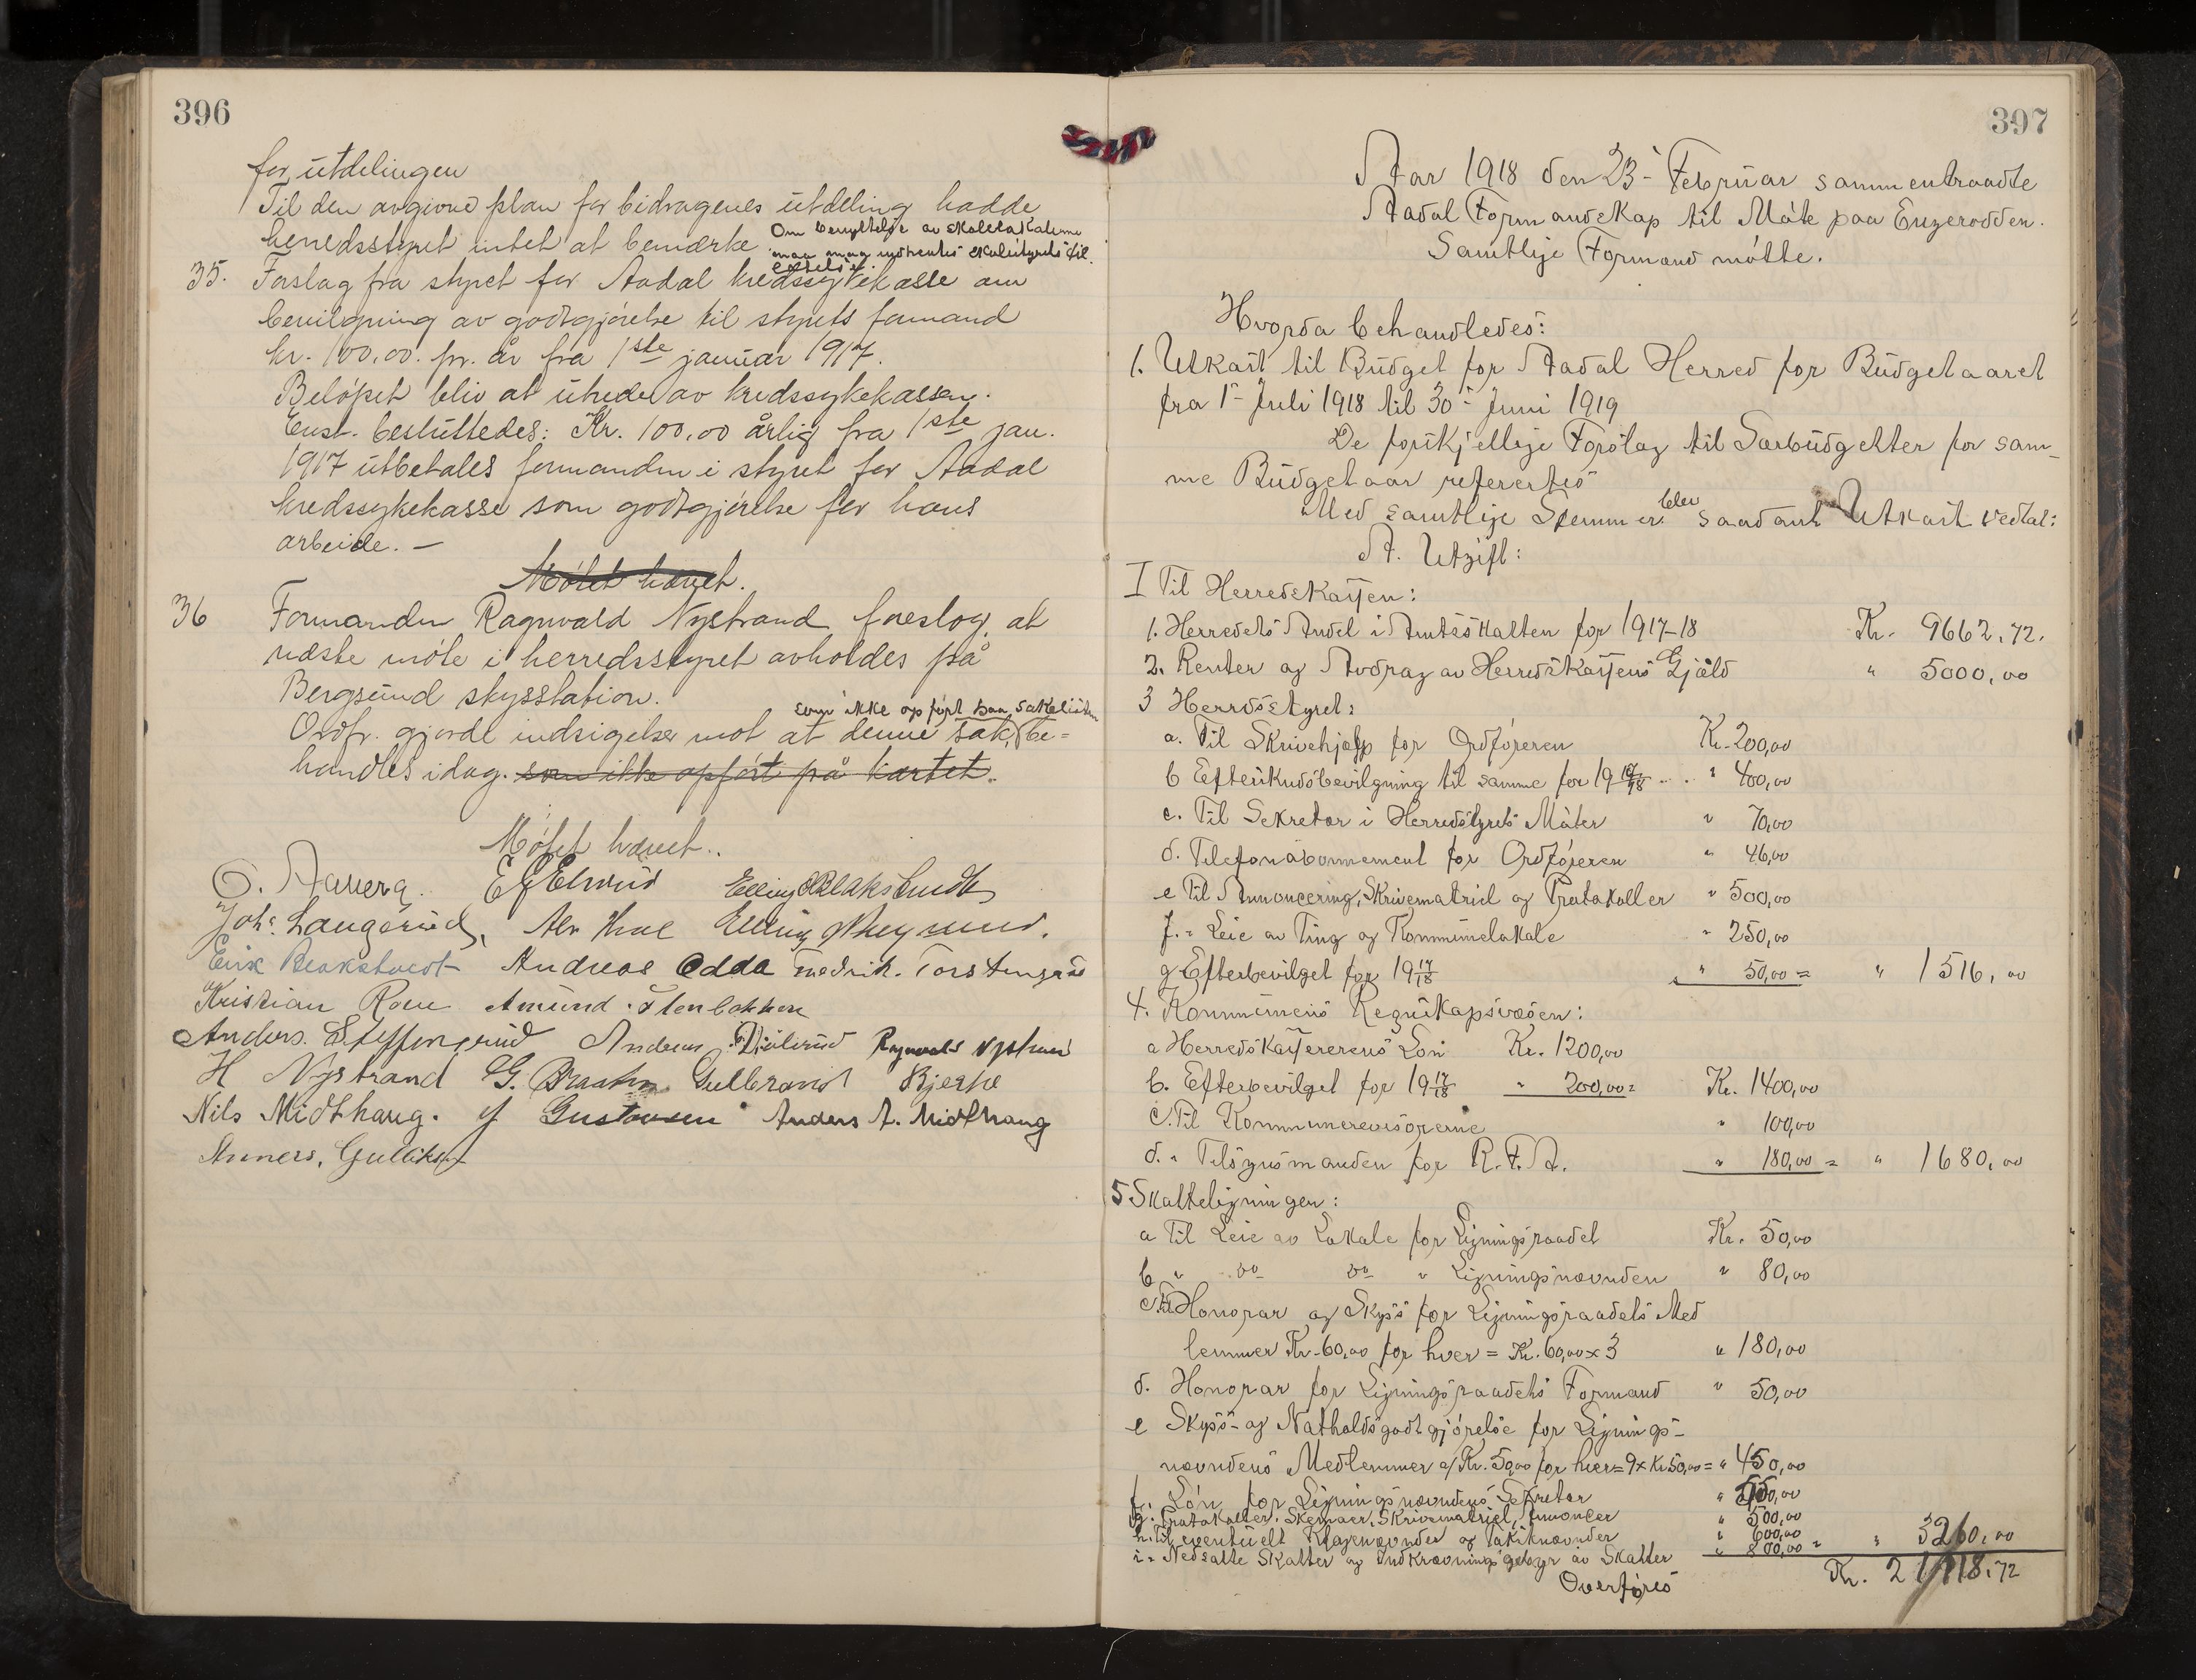 396
for utdelingen
Til den avgivne plan for bidragenes utdeling hadde
herredsstyret intet at bemærke. Om benyttelse av skolelokalerne
maa indhentes skolestyrets til-
35. Forslag fra styret for Aadal kredssykekasse om
bevilgning av godtgjørelse til styrets formand
kr. 100,00 pr. år fra 1ste januar 1917.
Beløpet bliv at utrede av kredssykekassen.
Enst. besluttedes: Kr. 100,00 årlig fra 1ste jan.
1917 utbetales formanden i styret for Aadal
kredssykekasse som godtgjørelse for hans
arbeide. —
Møtet hævet.
36 Formanden Ragnvald Nystrand foreslog, at
næste møte i herredsstyret avholdes på
Bergsund skysstation.
som ikke opført paa sakslisten
Ordf. gjorde indsigelse mot at denne sak, be=
handles idag. som ikke opført på kartet.
Møtet hævet..
O. Aaverg. E G Elsrud Elling Blakstvedt
Johs. Langerud, Elling
Erik Blakstvedt Andreas Odda Fredrik. Torstensrud
Kristian Roen Amund
Anders. Steffensrud Andreas Ragnvald Nystrand
H Nystrand G. Braaten Gulbrand Bjerke
Nils Midthaug. Gustavsen Anders A. Midthaug
Anners. Gulliksen
397
Aar 1918 den 23- Februar sammentraadte
Aadal Formandskap til Møte paa Engerodden.
Samtlige Formænd møtte.
Hvorda behandledes:
1. Utkast til Budget for Aadal Herred for Budgetaaret
fra 1- Juli 1918 til 30- Juni 1919
De forskjellige Forslag til Særbudgetter for sam-
me Budgetaar referertes
Med samtlige Stemmer blev saadant Utkast vedtat:
A. Utgift:
I Til Herredskassen:
1. Herredets Andel i Amtsskatten for 1917-18 Kr. 9662,72.
2. Renter og Avdrag av Herredskassens Gjæld " 5000,00
3 Herredsstyret:
a. Til Skrivehjælp for Ordføreren Kr. 200,00
b Efterskudsbevilgning til samme for 19 17/18 .. . " 400,00
c. Til Sekretær i Herredstyrets Møter " 70,00
d. Telefonabonnement for Ordføreren " 46,00
e Til Annoncering, Skrivematriel og Protokoller " 500,00
f. " Leie av Ting og Kommunelokale " 250,00
g Efterbevilget for 19 17/18 " 50,00 = " 1516,00
4. Kommunens Regnskapsvæsen:
a Herredskassererens Løn Kr. 1200,00
b. Efterbevilget for 19 17/18 " 200,00 = Kr. 1400,00
c. Til Kommunerevisorerne " 100,00
d. " Tilsynsmanden for R.F.A. " 180,00 = " 1680,00
5 Skatteligningen:
a Til Leie av Lokale for Ligningsraadet Kr. 50,00
b " do do " Ligningsnævnden " 80,00
c Til Honorar og Skyss for Ligningsraadets Med
lemmer Kr. 60,00 for hver = Kr. 60,00 x 3 " 180,00
d. Honorar for Ligningsraadets Formand " 50,00
e Skyss- og Natholdsgodtgjørelse for Lignings-
nævndens Medlemmer a/ Kr. 50,00 for hver = 9 x Kr 50,00 = " 450,00
f. Løn for Ligningsnævndens Sekretær " 550,00
g. Protokoller, Skemaer, Skrivematriel, Annoncer " 500,00
h. Til eventuelt Klagenævnder og Takstnævnder " 600,00
i " Nedsatte Skatter og Indkrævningsgebyr av Skatter " 800,00 = " 3260,00
Overføres Kr. 21118,72